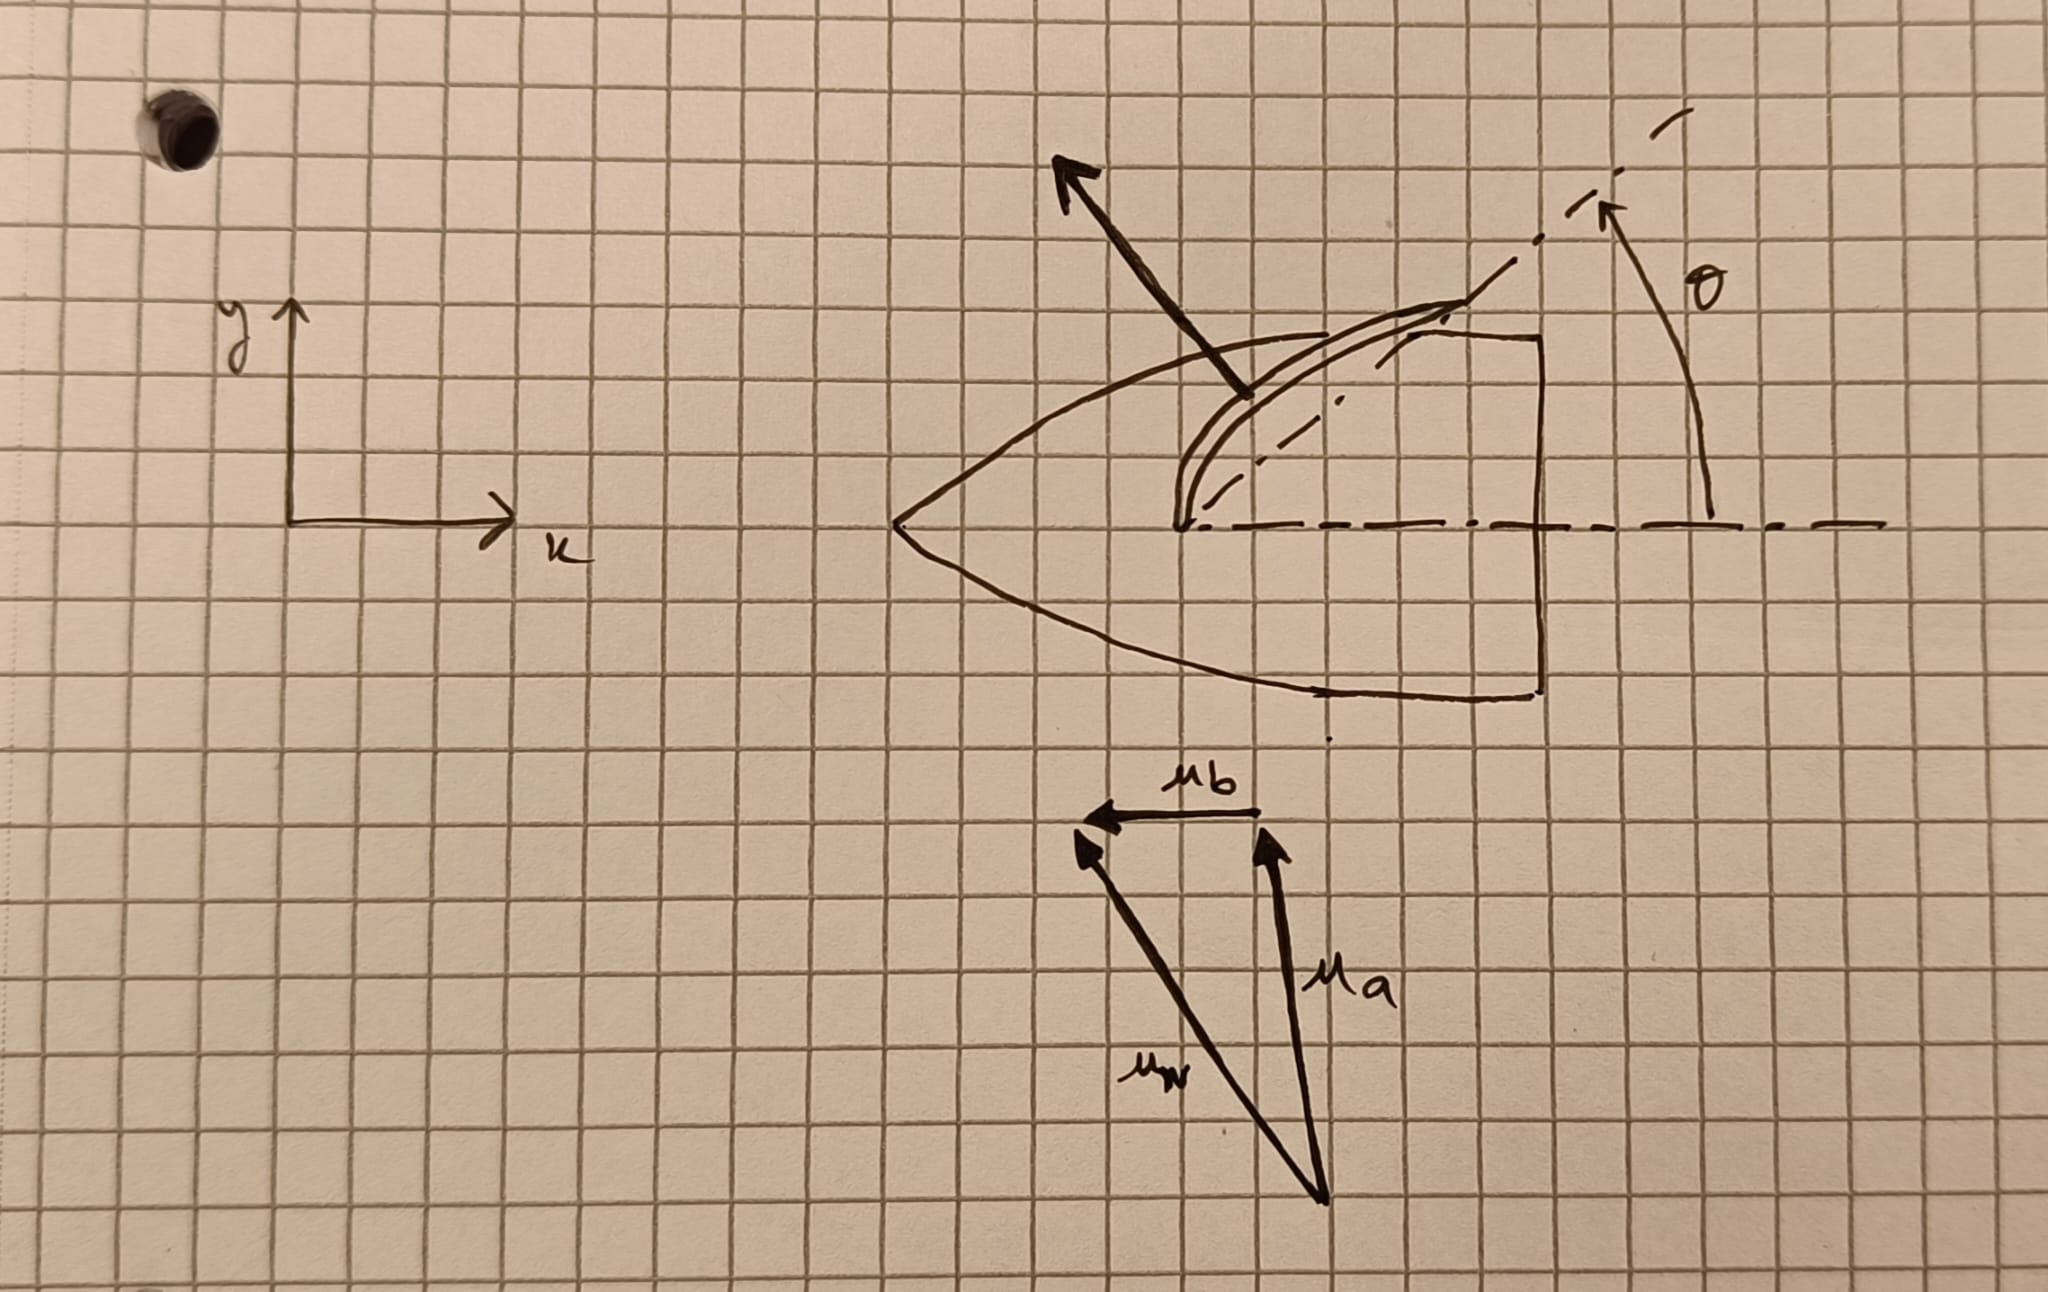 y
x
θ
u_b
u_a
u_w